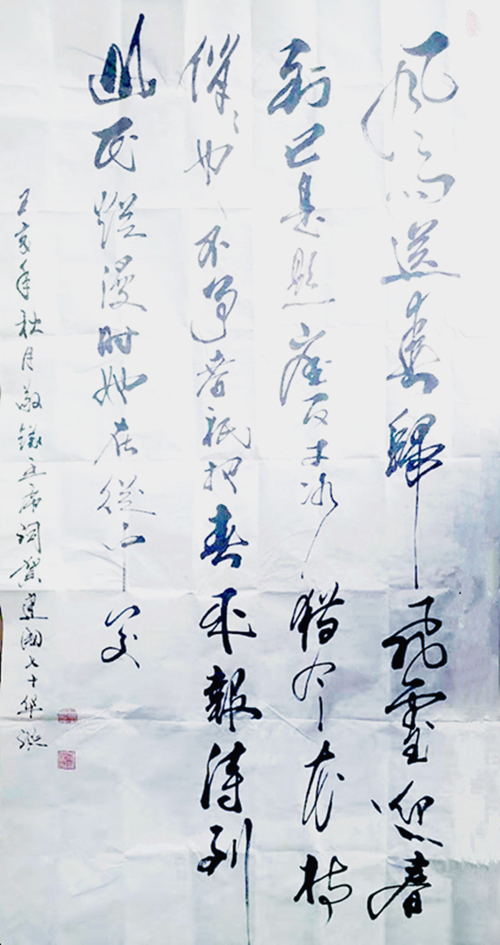 風雨送春歸飛雪迎春
到已是懸崖百丈冰猶有花枝
俏〻也不爭春祇把春來報待到
山花爛漫时她在從中笑
己亥年秋月敬錄主席詞賀建國七十華誕